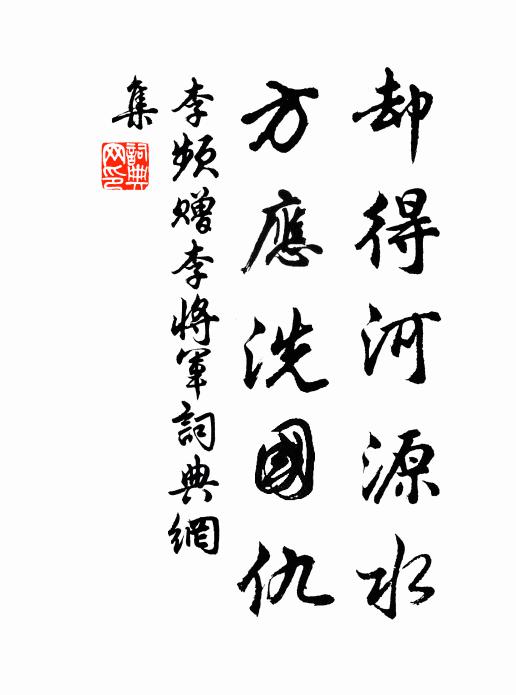 却得河源水
方應洗國仇
李頻贈李將軍詞典網
集
詞典
网印